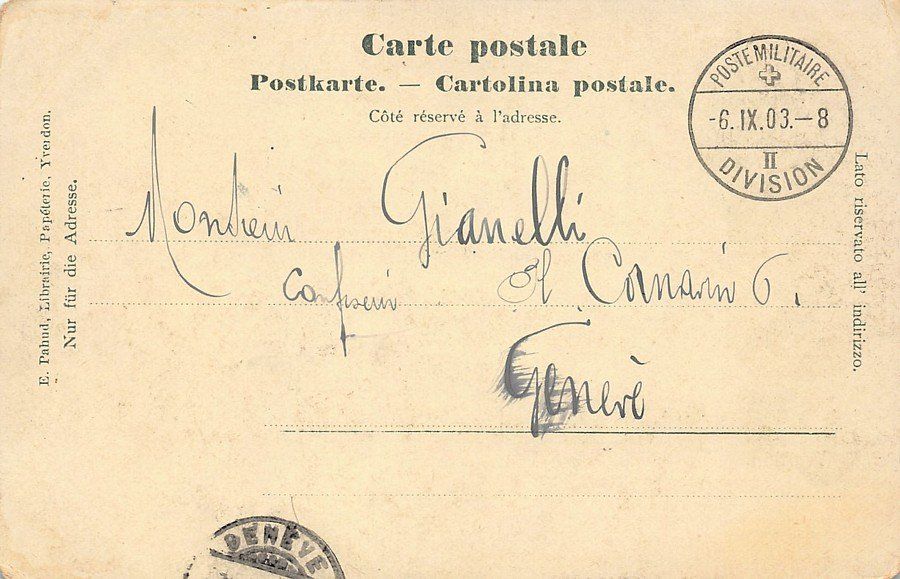 Carte postale
Postkarte. — Cartolina postale.
Côté réservé à l'adresse.
POSTE MILITAIRE
-6.IX.03.-8
II
DIVISION
E. Pahud, Librairie, Papéterie, Yverdon.
Nur für die Adresse.
Lato riservato all' indirizzo.
Monsieur Gianelli
Confiseur 6.
Genève
GENÈVE